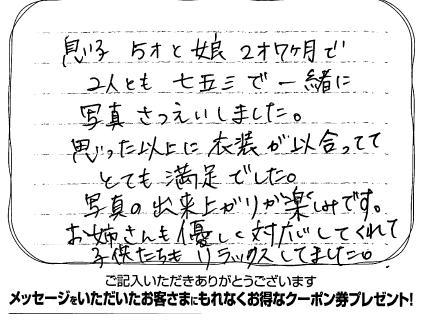 息子 5才と娘 2才7ヶ月で
2人とも 七五三で一緒に
写真さつえいしました。
思った以上に衣装が似合ってて
とても満足でした。
写真の出来上がりが楽しみです。
お姉さんも優しく対応してくれて
子供たちもリラックスしてました。
ご記入いただきありがとうございます
メッセージをいただいたお客さまにもれなくお得なクーポン券プレゼント!